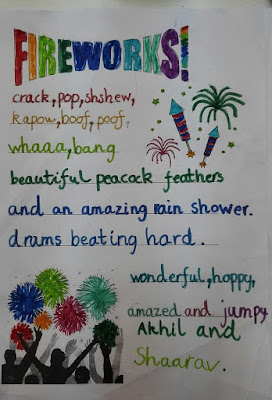 FIREWORKS!
crack,pop,shshew,
kapow,boof,poof,
whaaa,bang
beautiful peacock feathers
and an amazing rain shower.
drums beating hard.
wonderful,happy,
amazed and jumpy
Akhil and
Shaarav.